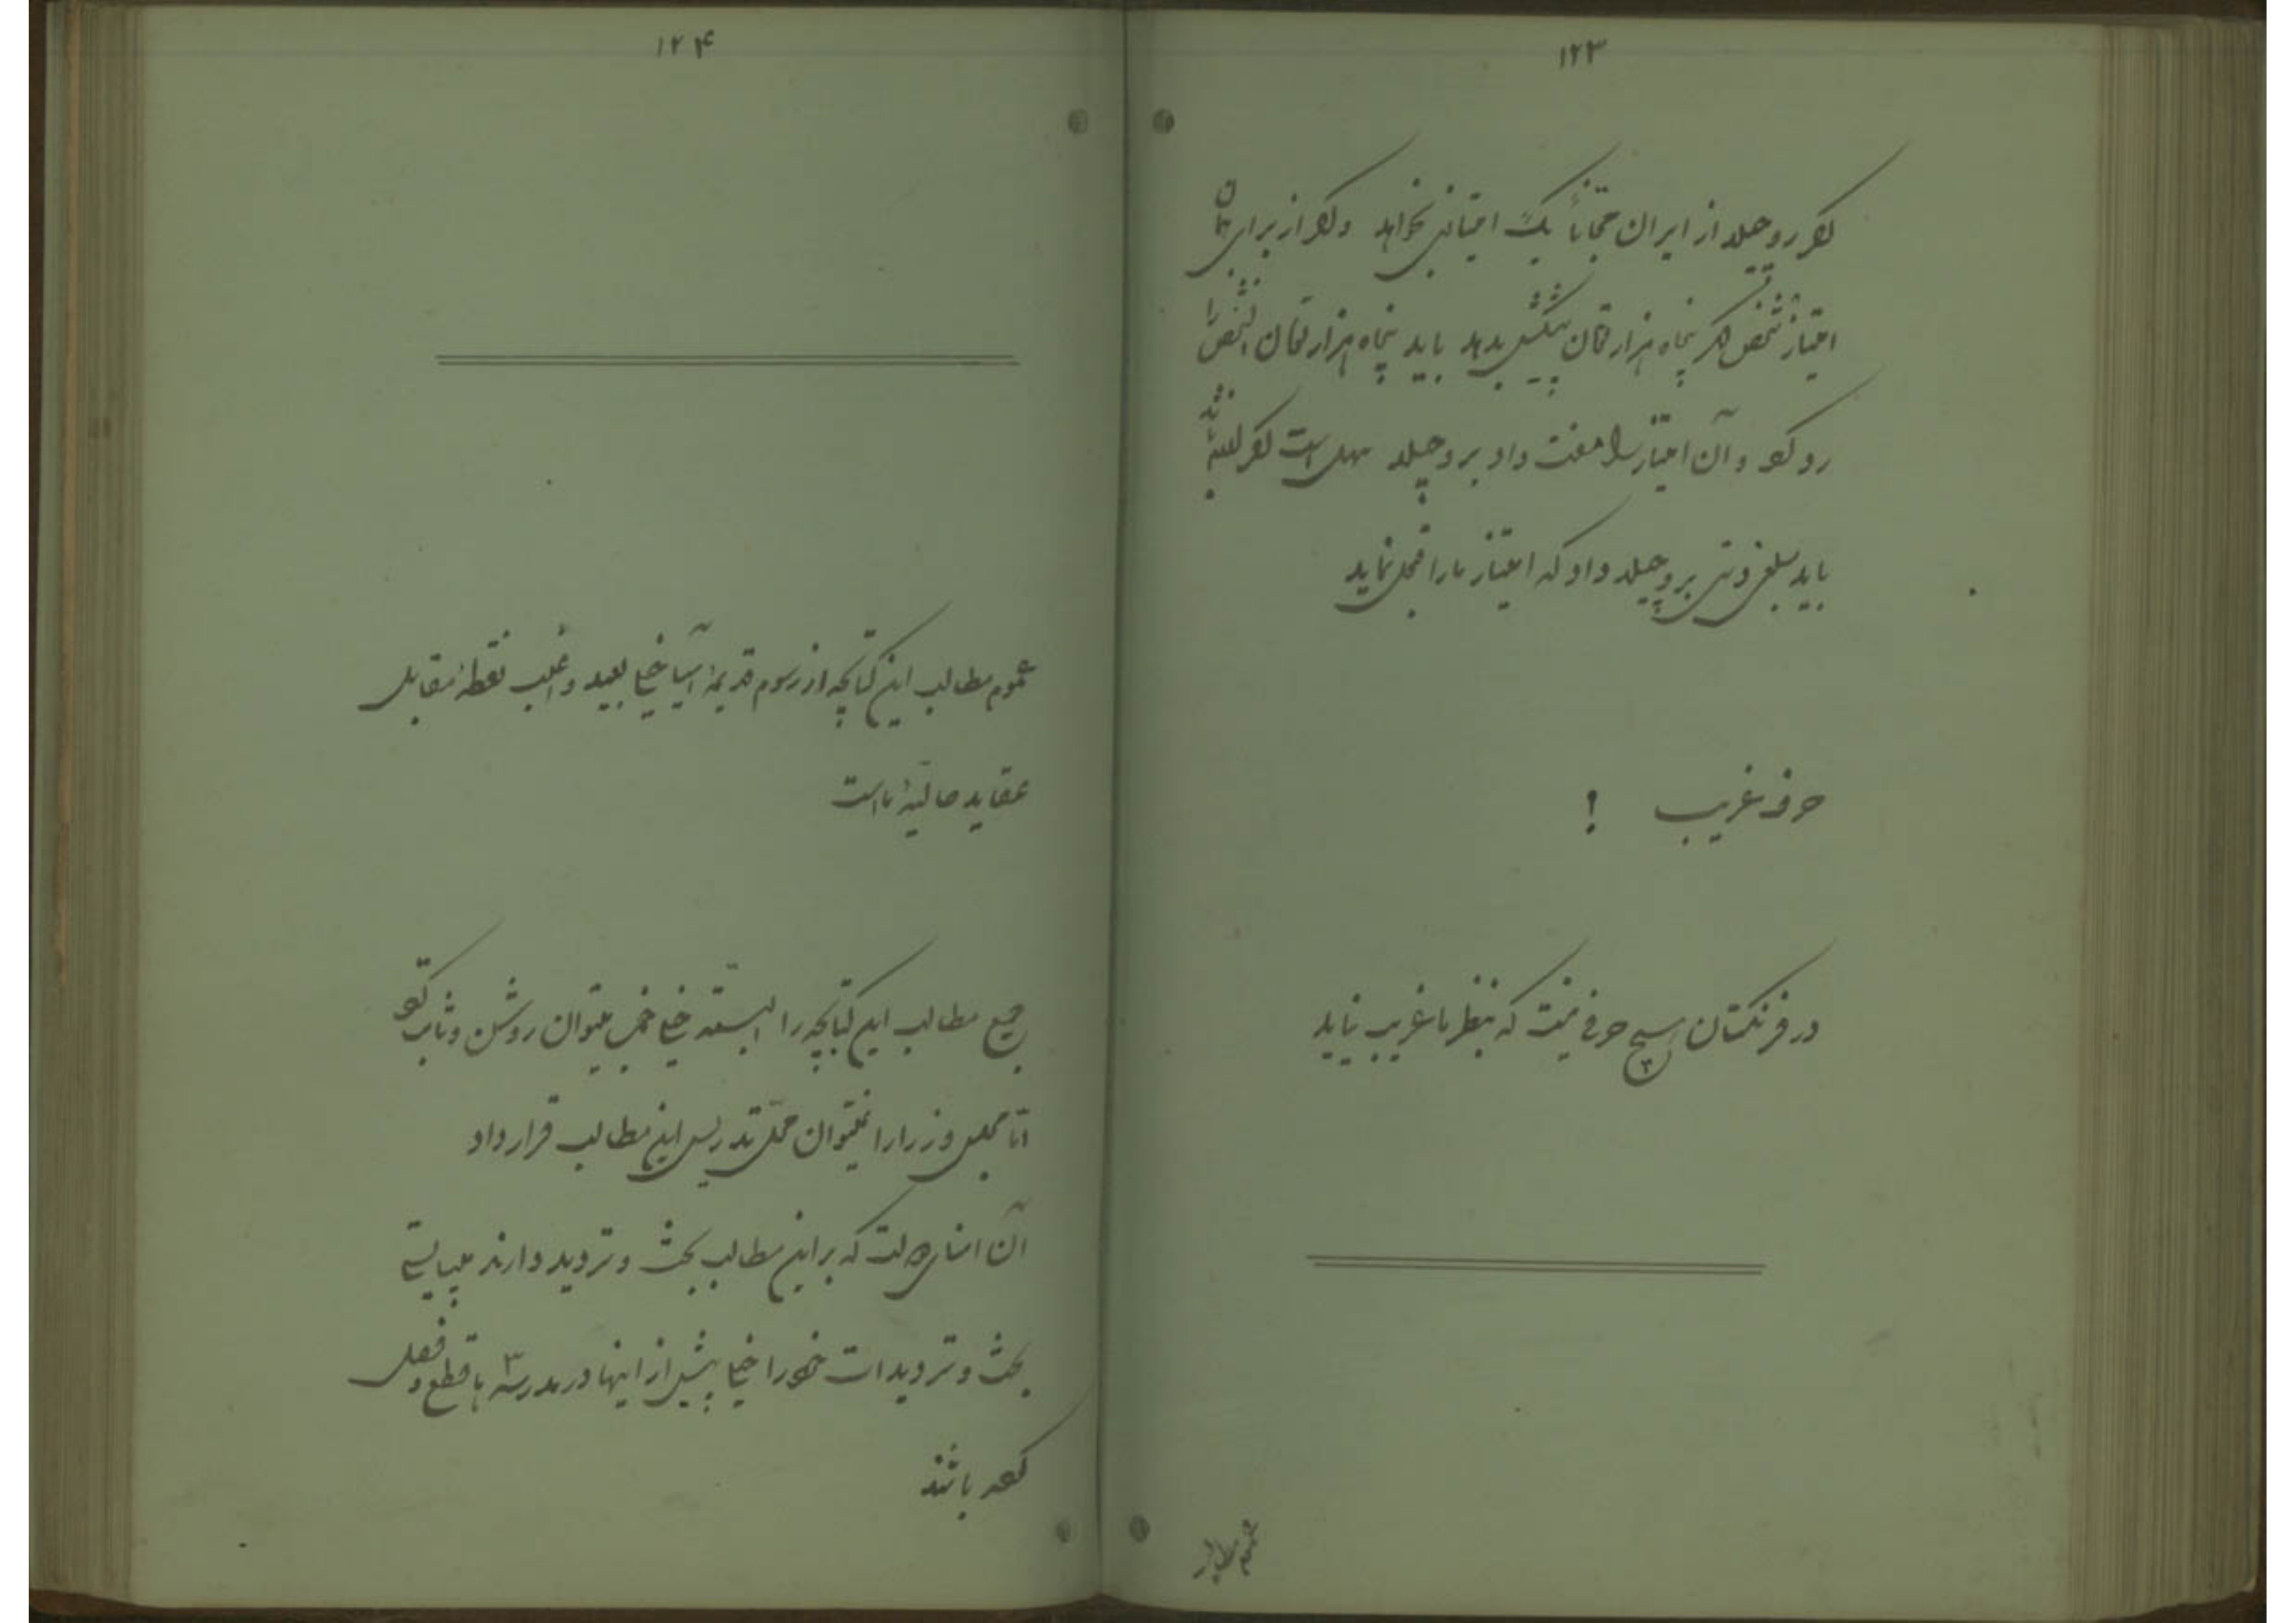 ۱۲۳
اگر روچیلد از ایران مجاناً یک امتیازی بخواهد و اگر از برای همان
امتیاز شخص دیگر پنجاه هزار تومان پیشکش بدهد باید پنجاه هزار تومان آنشخص را
رد کرد و آن امتیاز را مفت داد بروچیلد سهل است اگر لازم باشد
باید مبلغی دستی بروچیلد داد که امتیاز ما را قبول نماید
حرف غریب !
در فرنگستان هیچ حرفی نیست که بنظر ما غریب نیاید
عموم مطالب
۱۲۴
عموم مطالب این کتابچه از رسوم قدیمهٔ آسیا خیلی بعید و اغلب نقطهٔ مقابل
عقاید حالیهٔ ما است
جمیع مطالب این کتابچه را البته خیلی خوب میتوان روشن و ثابت کرد
اما مجلس وزرا را نمیتوان محل تدریس این مطالب قرار داد
آن امنای دولت که بر این مطالب بحث و تردید دارند میبایستی
بحث و تردیدات خود را خیلی پیش از اینها در مدرسه ها قطع و فصل
کرده باشند